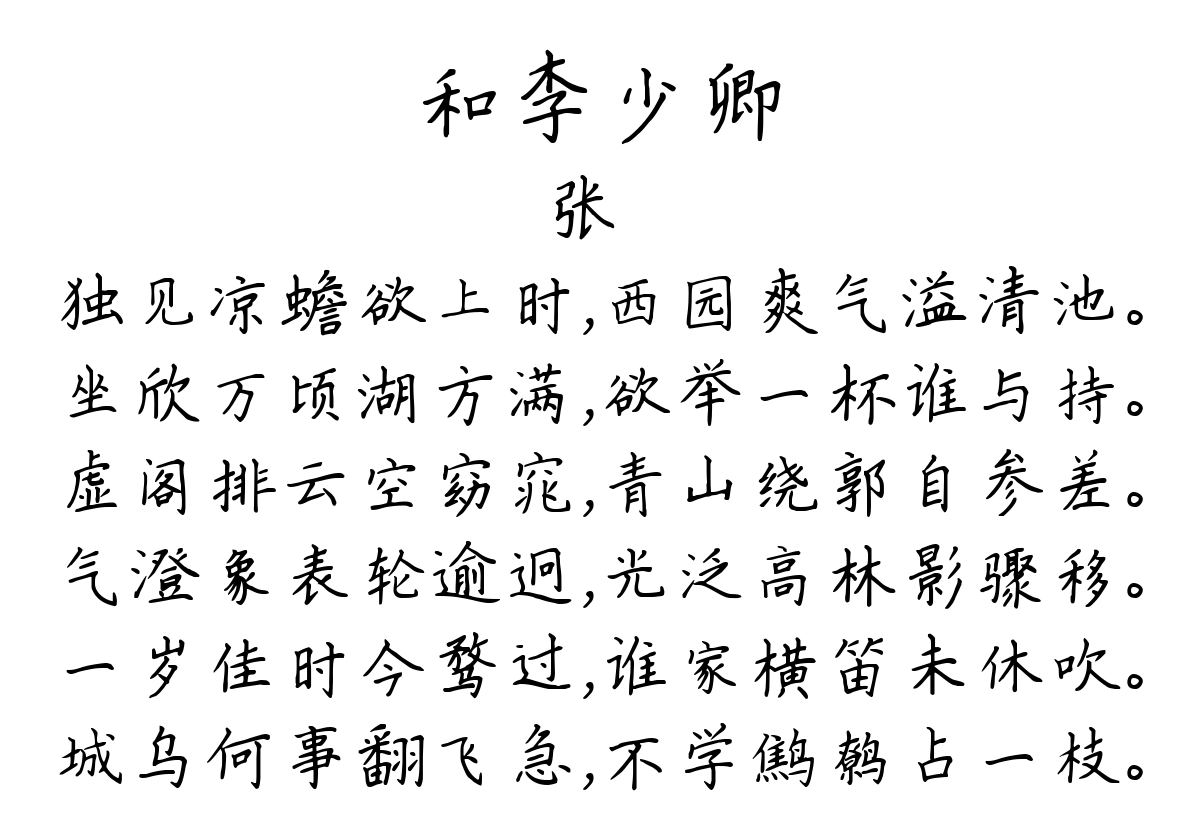 和李少卿
张
独见凉蟾欲上时,西园爽气溢清池。
坐欣万顷湖方满,欲举一杯谁与持。
虚阁排云空窈窕,青山绕郭自参差。
气澄象表轮逾迥,光泛高林影骤移。
一岁佳时今鹜过,谁家横笛未休吹。
城乌何事翻飞急,不学鹪鹩占一枝。